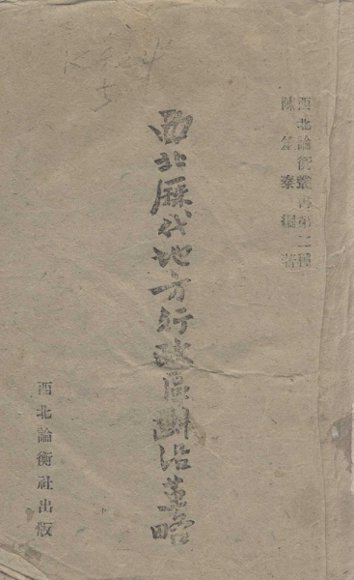 西北論衡叢書第二種
陳 編著
西北歷代地方行政區劃沿革略
西北論衡社出版